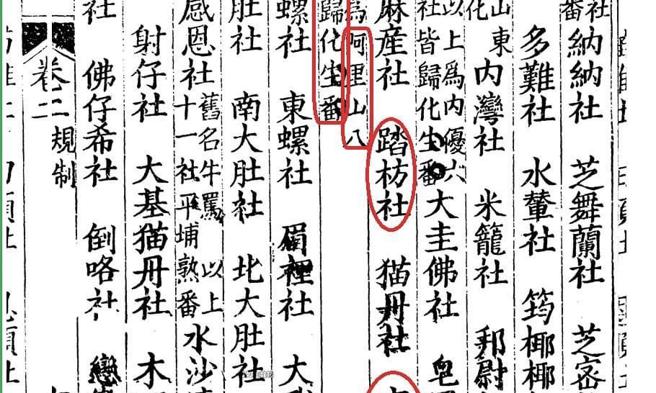 社
番
納納社 芝舞蘭社 芝密
多難社 水輦社 筠椰椰
山東
化
內灣社 米籠社
以上爲內優六
社皆歸化生番
大圭佛社
麻產社 踏枋社 猫丹社
爲阿里山八
歸化生番
螺社 東螺社 眉裡社 大
肚社 南大肚社 北大肚社
感恩社
舊名牛罵 以上
十一社平埔熟番
水沙
射仔社 大基猫丹社 木
佛仔希社 倒咯社
卷二 規制